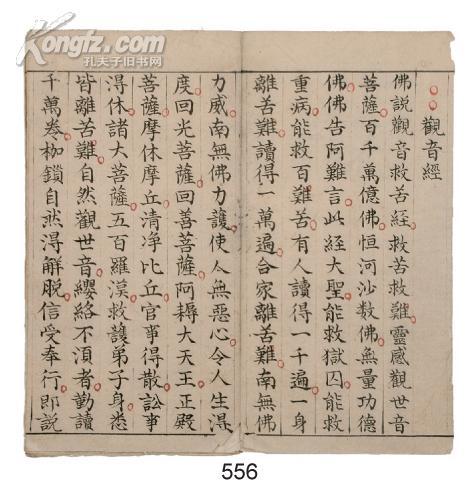 Kongfz.com
孔夫子旧书网
觀音經
佛說觀音救苦經救苦救難靈感觀世音
菩薩百千萬億佛恒河沙數佛無量功德
佛佛告阿難言此經大聖能救獄囚能救
重病能救百難苦有人讀得一千遍一身
離苦難讀得一萬遍合家離苦難南無佛
力威南無佛力護使人無惡心令人生得
度回光菩薩回善菩薩阿耨大天王正殿
菩薩摩休摩丘清淨比丘官事得散訟事
得休諸大菩薩五百羅漢救護弟子身悉
皆離苦難自然觀世音纓絡不湏者勤讀
千萬卷枷鎖自然得解脫信受奉行即說
556